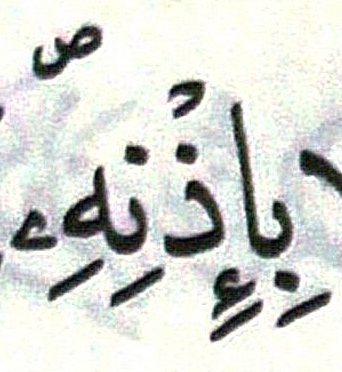 بِإِذْنِهِۦ ۖ